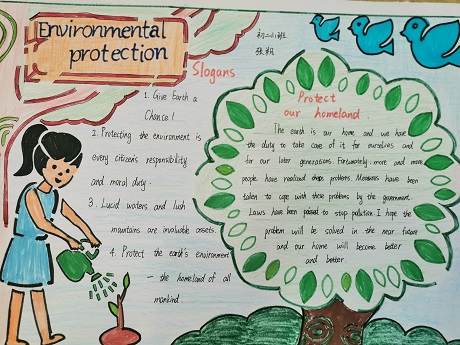 Environmental
protection
Slogans
1. Give Earth a
Chance!
2. Protecting the environment is
every citizen's responsibility
and moral duty.
3. Lucid waters and lush
mountains are invaluable assets.
4. Protect the earth's environment
— the homeland of all
mankind
Protect
our homeland
The earth is our home and we have
the duty to take care of it for ourselves and
for our later generations. Fortunately, more and more
people have realized these problems. Measures have been
taken to cope with these problems by the government.
Laws have been passed to stop pollution. I hope the
problem will be solved in the near future
and our home will become better
and better.